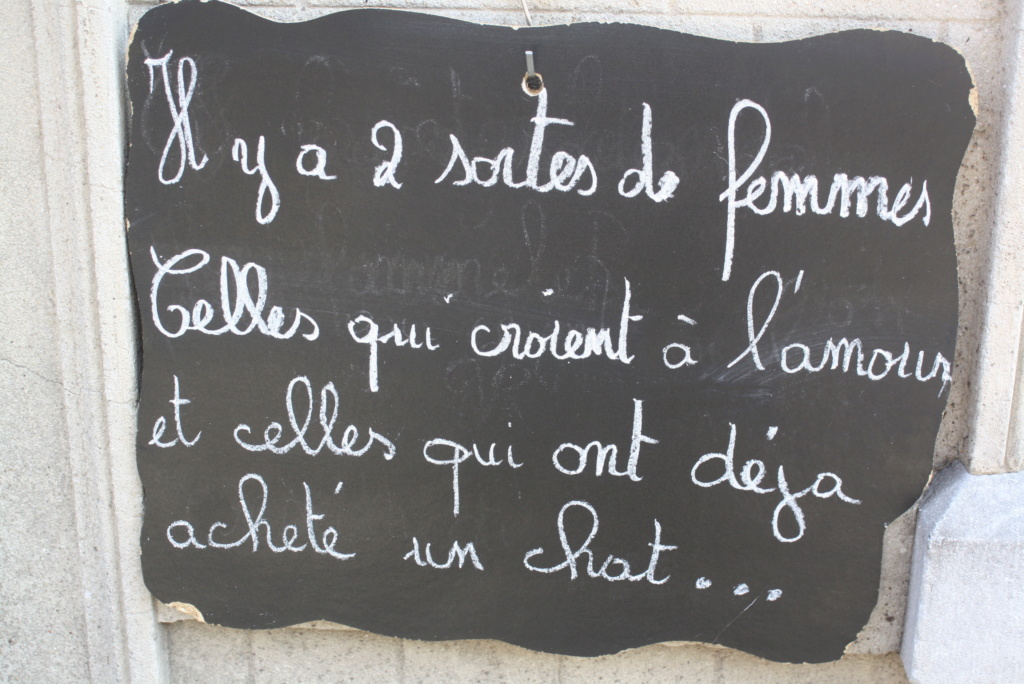 Il y a 2 sortes de femmes
Celles qui croient à l'amour,
et celles qui ont déja
acheté un chat...